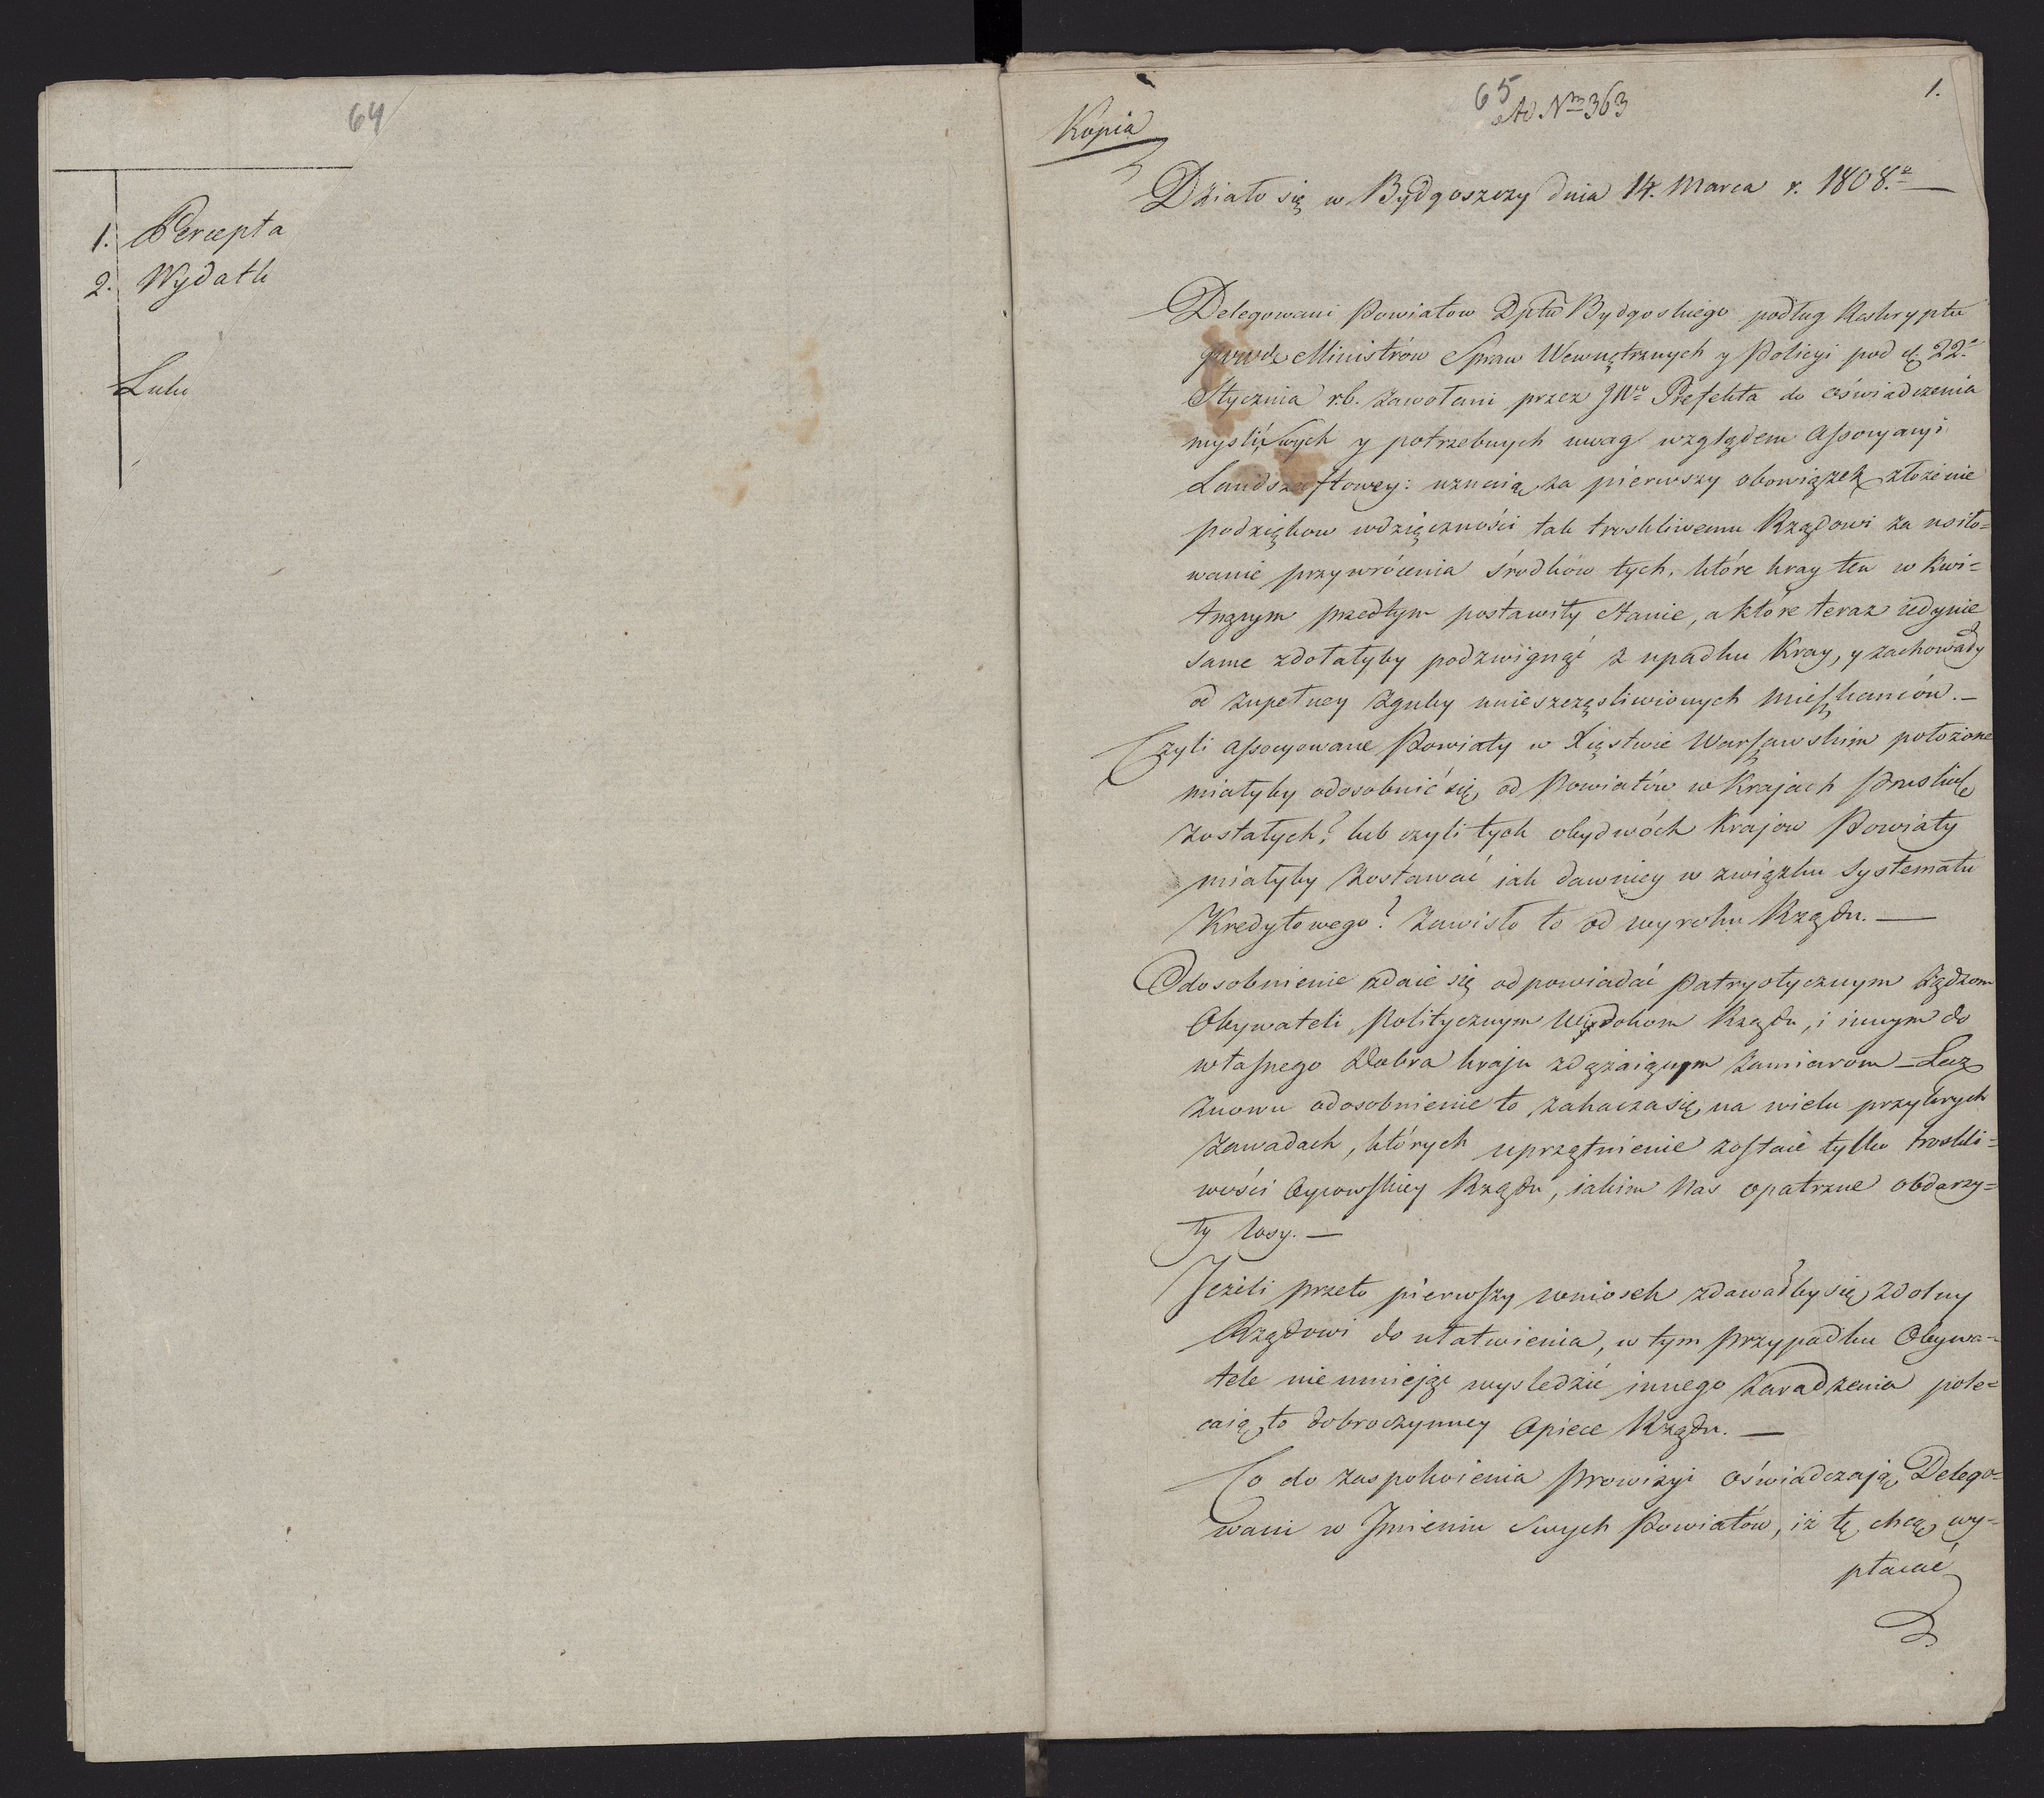 64
1. Percepta
2. Wydatk
65
Ad Nrm 363
1.
Kopia
Działo się w Bydgoszczy dnia 14. Marca r. 1808.
Delegowani Powiatow Dptu Bydgoskiego podług Reskryptu
Ministrów Spraw Wewnętrznych y Policyi pod d. 22.
Stycznia r.b. zawołani przez JWo Prefekta do oświadczenia
y potrzebnych uwag względem Assocyacyi
Landszaftowey: uznaią za pierwszy obowiązek złożenie
podzięków wdzięczności tak troskliwemu Rządowi za usiło=
wanie przywrócenia środków tych, które kray ten w kwi=
tnącym przedtym postawiły stanie, a które teraz iedynie
same zdołałyby podzwignąć z upadku Kray, y zachować
od zupełney zguby unieszczęsliwionych mieszkańców. –
Czyli assocyowane Powiaty w Xięstwie Warszawskim położone
miałyby odosobnić się od Powiatów w Krajach Pruskich
zostałych? lub czyli tych obydwóch Krajow Powiaty
miałyby zostawać iak dawniey w związku systematu
Kredytowego? zawisło to od wyroku Rządu. —
Odosobnienie zdaie się odpowiadać patryotycznym żądzom
Obywateli, politycznym widokom Rządu, i innym do
własnego Dobra kraju zdążaiącym zamiarom – Lecz
znowu odosobnienie to zahacza się na wielu przykrych
zawadach, których uprzątnienie zostaie tylko troskli=
wości Oycowskiey Rządu, iakim nas opatrzne obdarzy=
ły losy. —
Jeżeli przeto pierwszy wniosek zdawałby się zdolny
Rządowi do ułatwienia, w tym przypadku Obywa=
tele nie umiejąc wysledzić innego zaradzenia pole=
caią to dobroczynney Opiece Rządu. —
Co do zaspokoienia prowizyi oświadczają Delego=
wani w Jmieniu swych Powiatów, iż tę chcą wy=
płacać